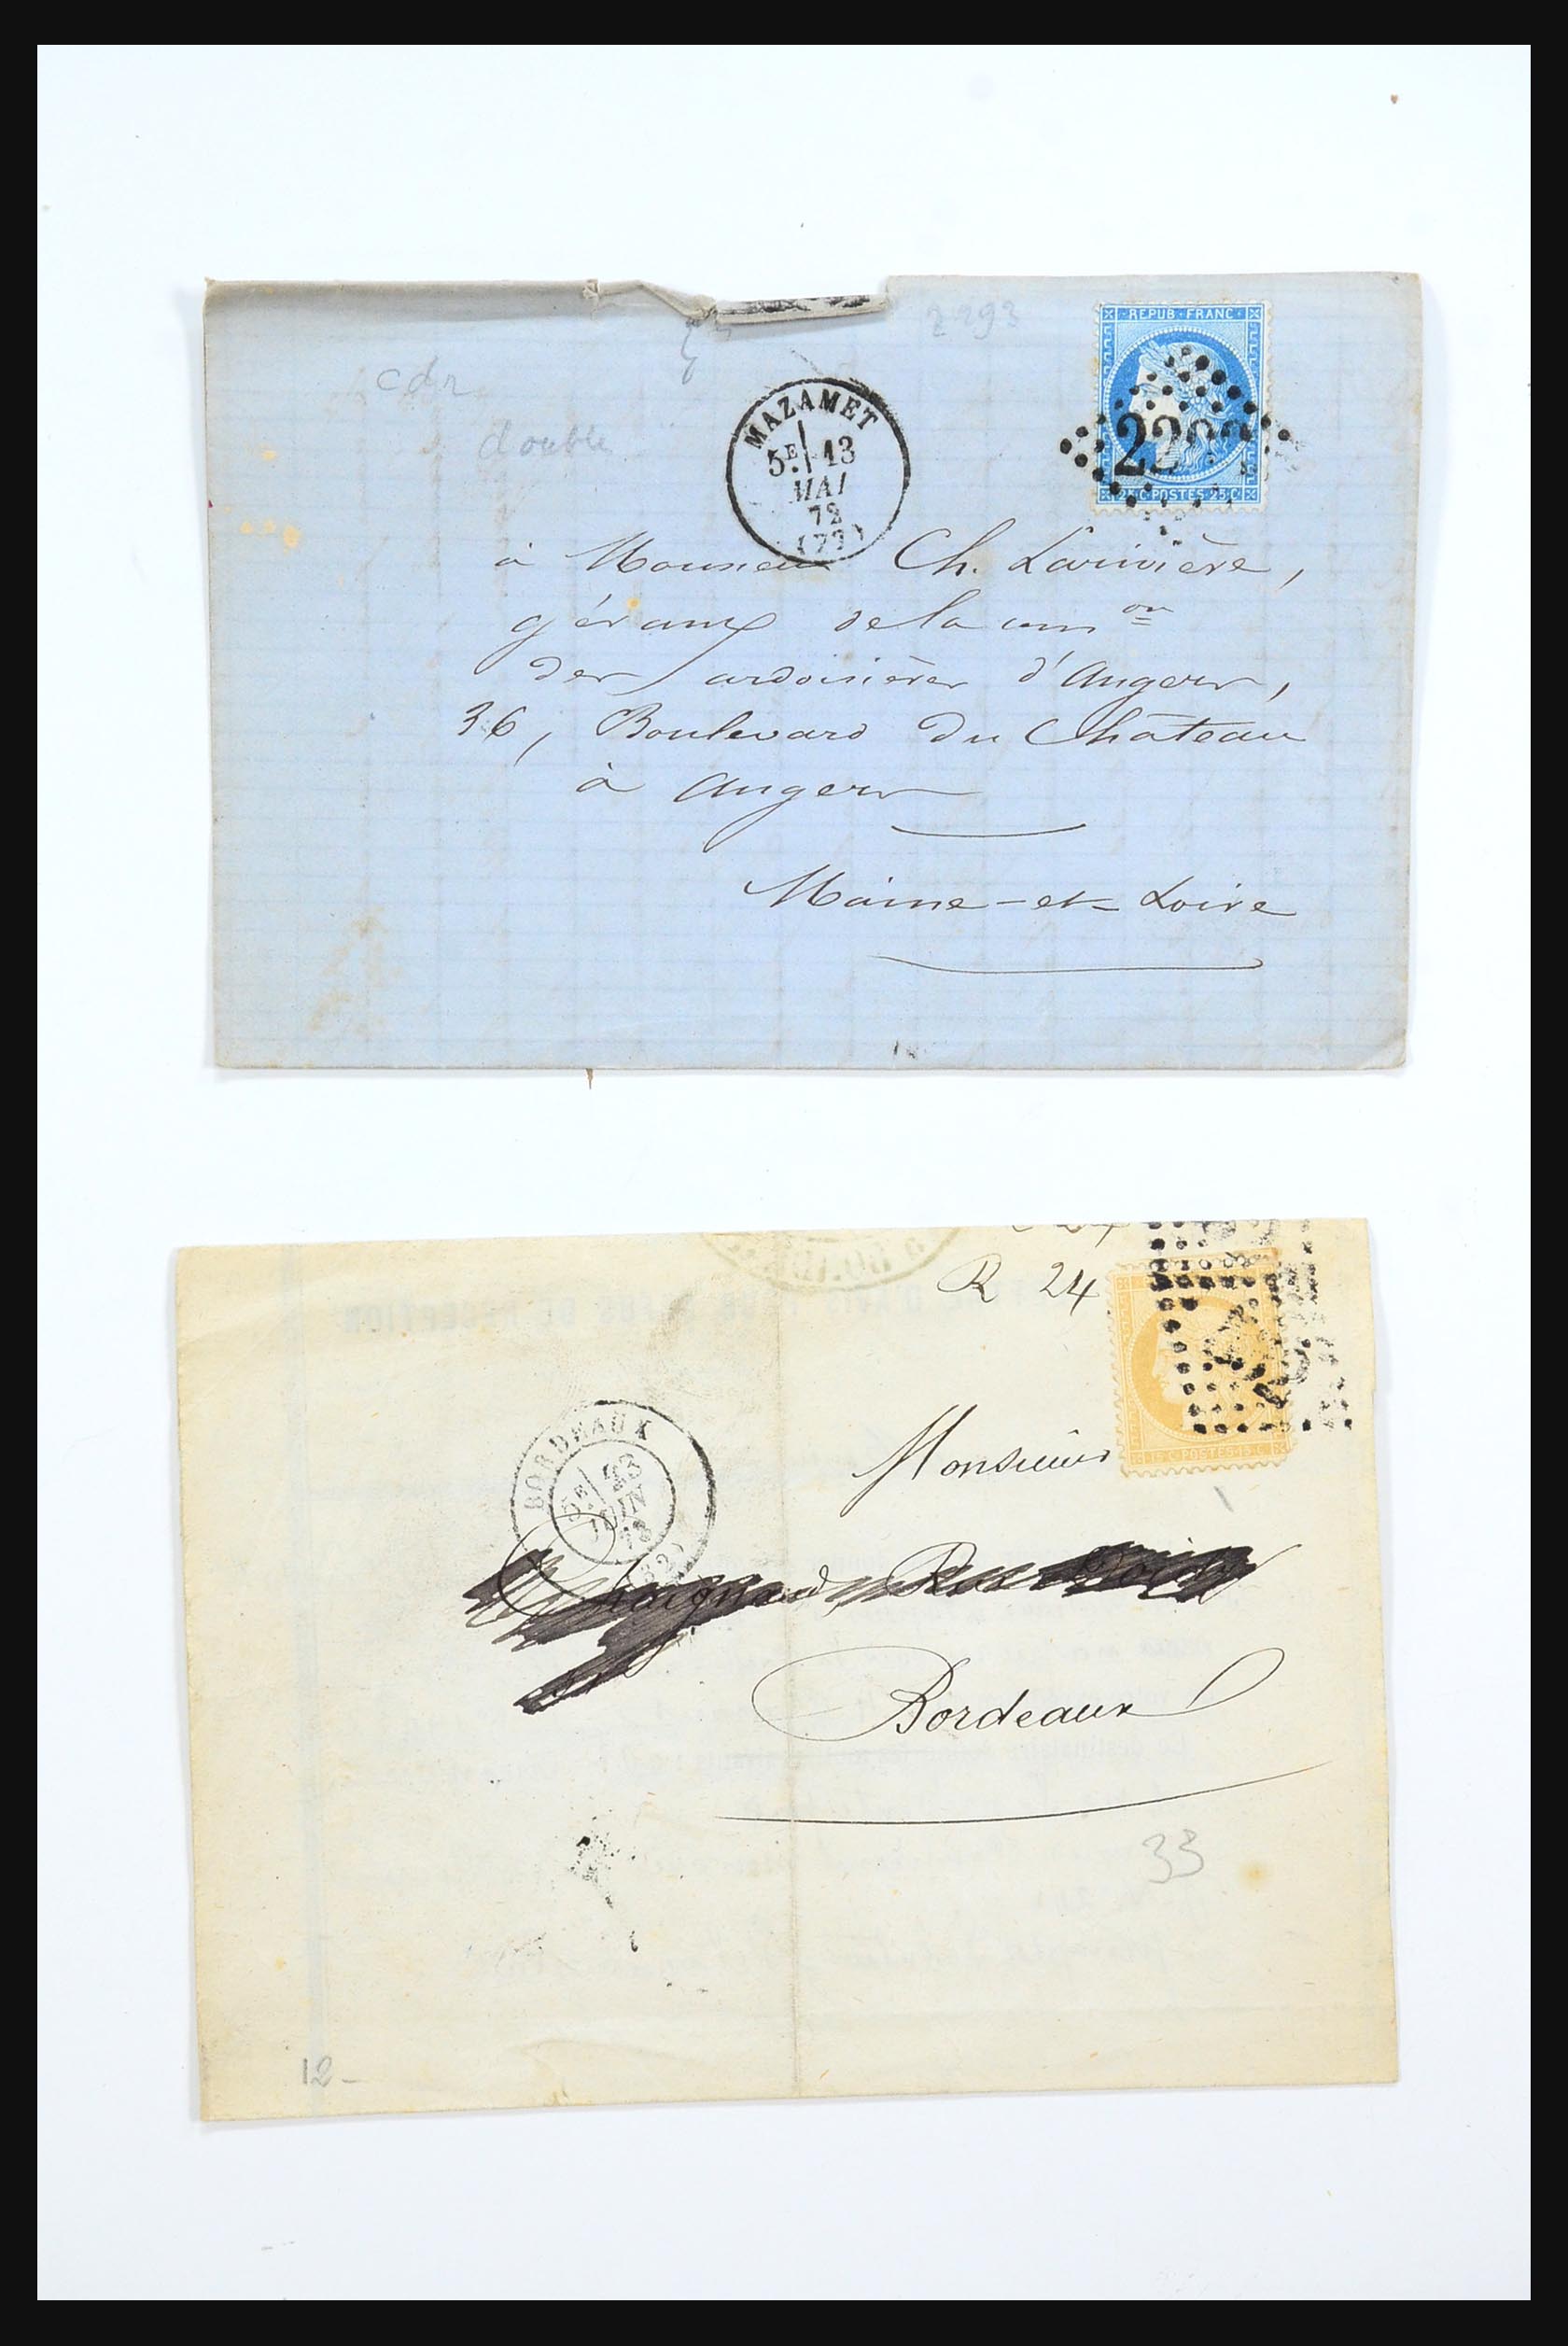 2293
cdr
double
REPUB·FRANC
25·C·POSTES·25·C
MAZAMET
5E 13
MAI
72
à Monsieur Ch. Larivière,
gérant de la comon
des ardoisières d'Angers,
36, Boulevard du Château
à Angers
Maine-et-Loire
R 24
15 C·POSTES·15 C
BORDEAUX
5E 23
JUIN
73
(32)
Monsieur
Bordeaux
33
12-